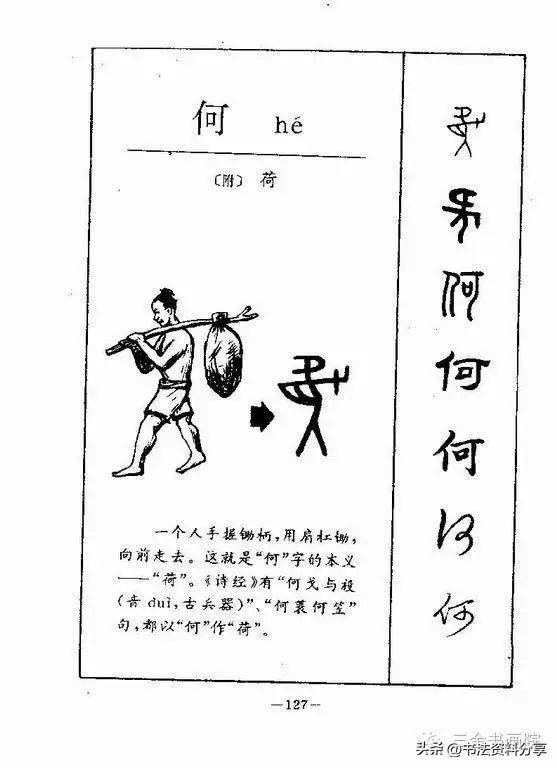 何 hé
〔附〕 荷
一个人手握锄柄，用肩杠锄，
向前走去。这就是“何”字的本义
——“荷”。《诗经》有“何戈与祋
（音 duì，古兵器）”、“何蓑何笠”
句，都以“何”作“荷”。
何
何
何
何
何
—127—
三余书画院
头条 @书法资料分享